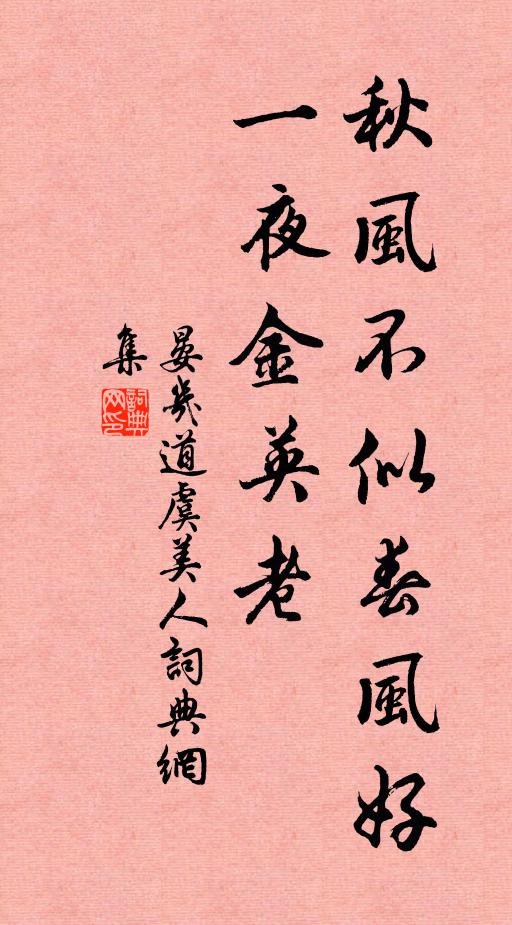 秋風不似春風好
一夜金英老
晏幾道虞美人詞典網
集
詞典
网印